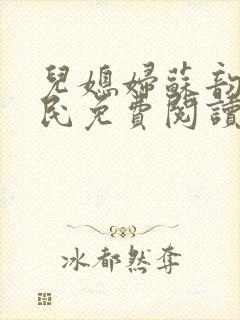 兒媳婦蘇韵
民免費閱讀
冰都然奪